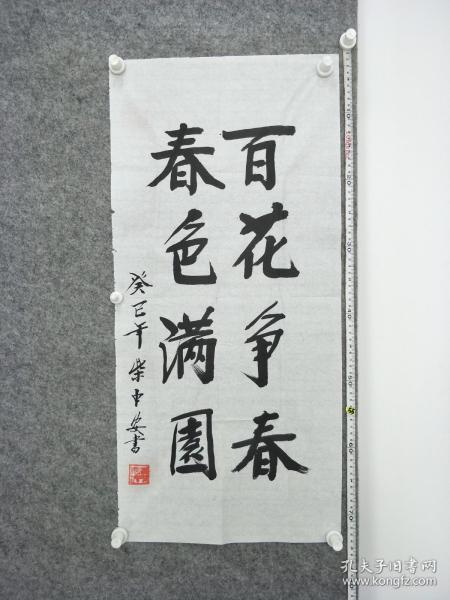 百花争春
春色满園
癸巳年柴中安書
孔夫子旧书网
www.kongfz.com